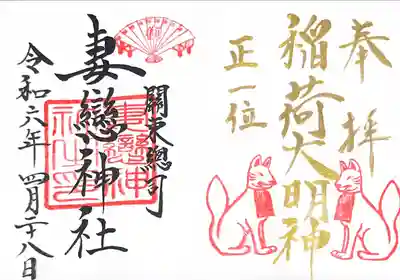 奉拝
稲荷大明神
正一位
關東總司
妻戀神社
令和六年 四月二十八日
妻戀神
社之印